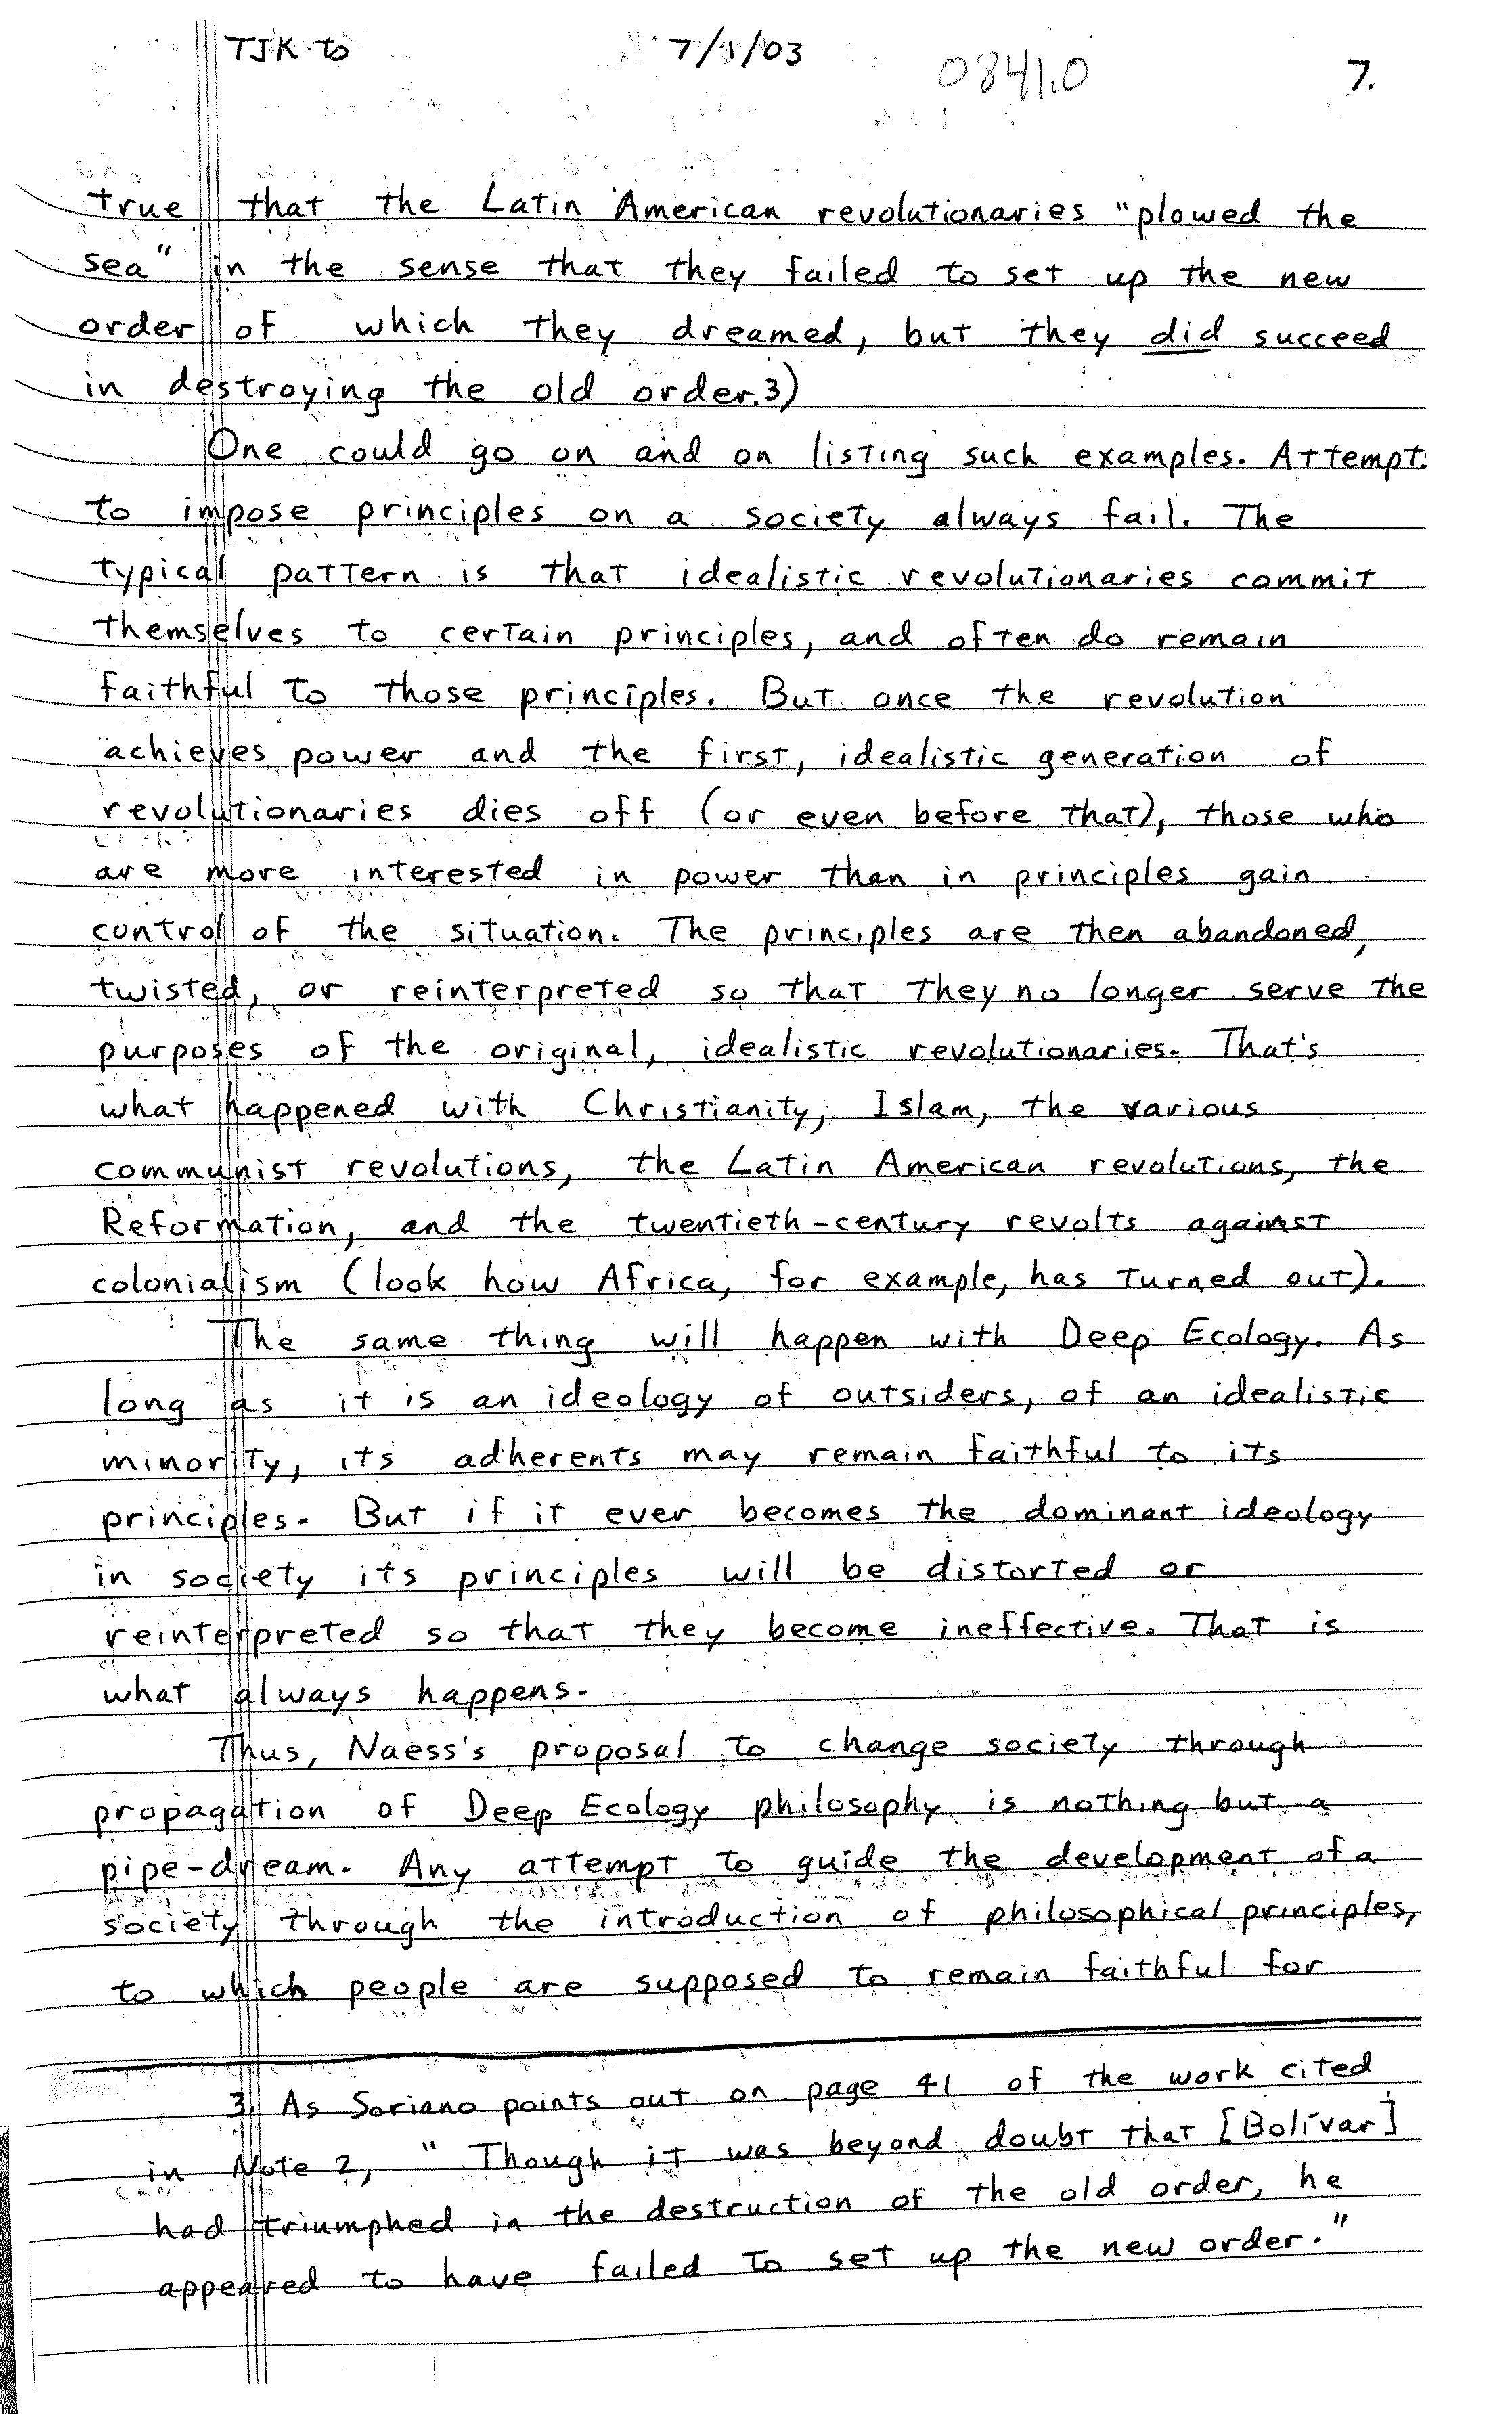 TJK to 7/1/03 0841.0 7.
true that the Latin American revolutionaries "plowed the
sea" in the sense that they failed to set up the new
order of which they dreamed, but they did succeed
in destroying the old order.3)
One could go on and on listing such examples. Attempt
to impose principles on a society always fail. The
typical pattern is that idealistic revolutionaries commit
themselves to certain principles, and often do remain
faithful to those principles. But once the revolution
achieves power and the first, idealistic generation of
revolutionaries dies off (or even before that), those who
are more interested in power than in principles gain
control of the situation. The principles are then abandoned,
twisted, or reinterpreted so that they no longer serve the
purposes of the original, idealistic revolutionaries. That's
what happened with Christianity, Islam, the various
communist revolutions, the Latin American revolutions, the
Reformation, and the twentieth-century revolts against
colonialism (look how Africa, for example, has turned out).
The same thing will happen with Deep Ecology. As
long as it is an ideology of outsiders, of an idealistic
minority, its adherents may remain faithful to its
principles. But if it ever becomes the dominant ideology
in society its principles will be distorted or
reinterpreted so that they become ineffective. That is
what always happens.
Thus, Naess's proposal to change society through
propagation of Deep Ecology philosophy is nothing but a
pipe-dream. Any attempt to guide the development of a
society through the introduction of philosophical principles,
to which people are supposed to remain faithful for
3. As Soriano points out on page 41 of the work cited
in Note 2, "Though it was beyond doubt that [Bolívar]
had triumphed in the destruction of the old order, he
appeared to have failed to set up the new order."